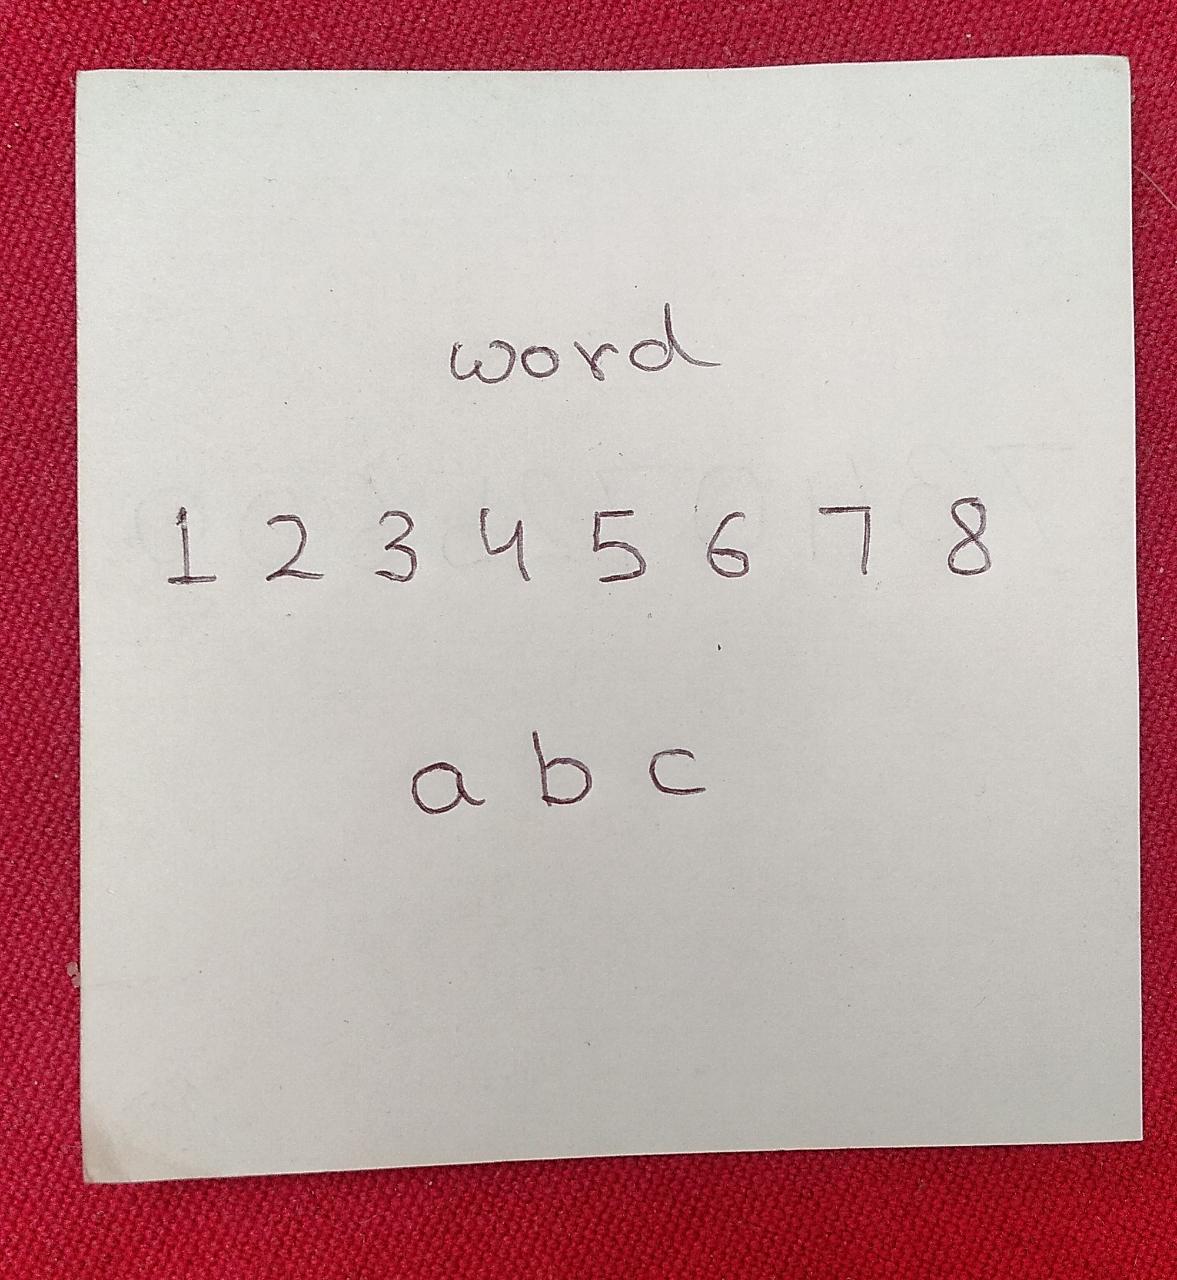 word
1 2 3 4 5 6 7 8
a b c